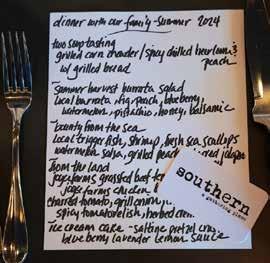 dinner with our family - summer 2024
two soup tasting
grilled corn chowder / spicy chilled heirloom &
peach
w/ grilled bread
Summer harvest burrata salad
local burrata, fig, peach, blueberry,
watermelon, pistachio, honey, balsamic
bounty from the sea
local trigger fish, shrimp, fresh sea scallops
watermelon salsa, grilled peach
from the land
farms grassfed beef
farms chicken
charred tomato, grill
spicy tomato relish, herbed
ice cream cake - saltine pretzel
blueberry lavender lemon sauce
southern